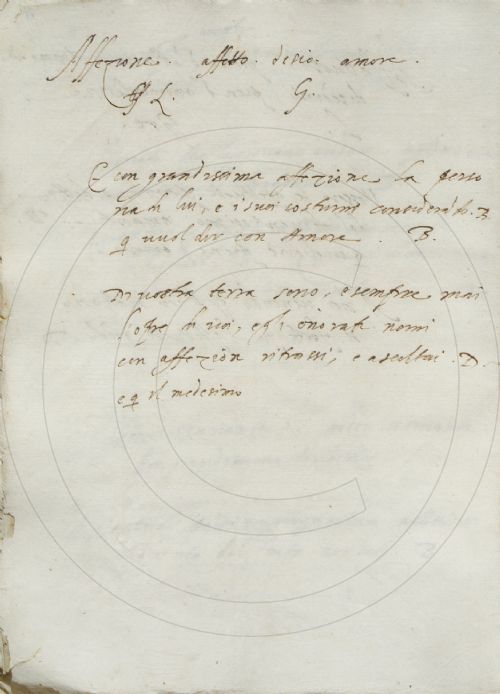 Affezione. affetto. desio. amore.
L. G.
E con grandissima affezione la perso
na di lui, e i suoi costumi considerati. B
q vuol dir con Amore. B.
Di vostra terra sono, e sempre mai
l'opre di voi, e gli onorati nomi
con affezion ritrassi, e ascoltai. D.
e q il medesimo